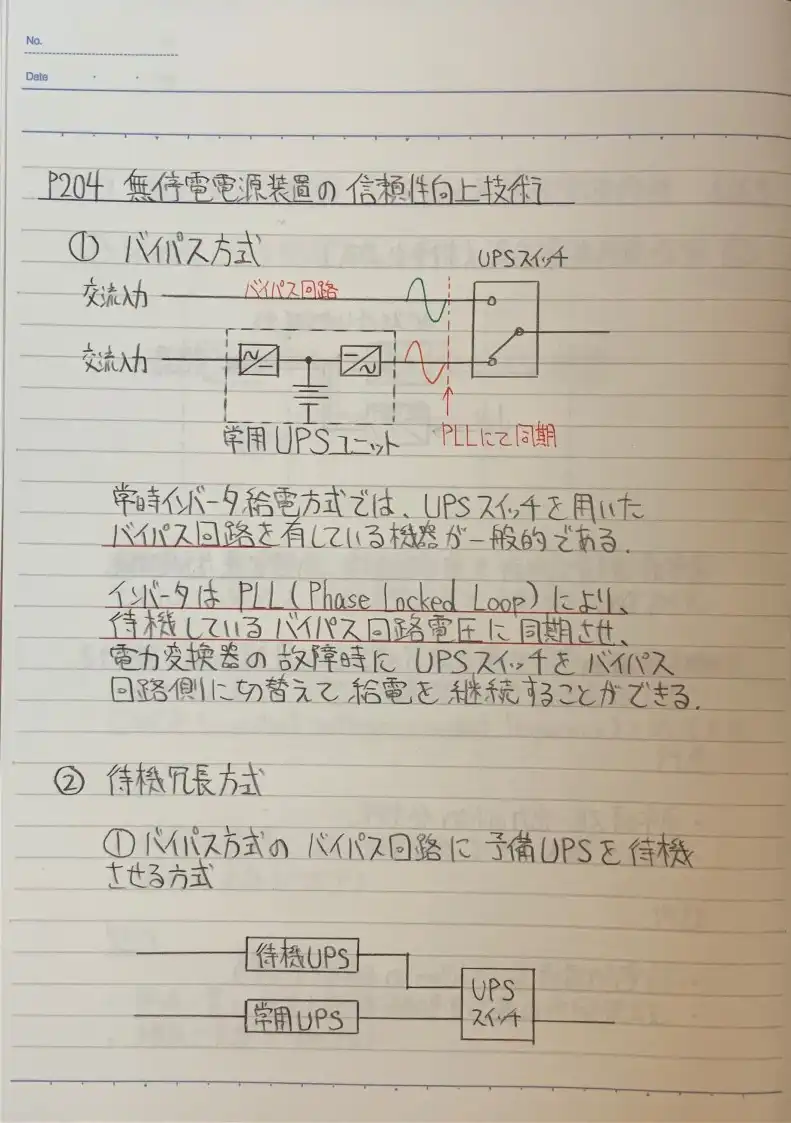 No.
Date
P204 無停電電源装置の信頼性向上技術
① バイパス方式
UPSスイッチ
交流入力
バイパス回路
交流入力
常用UPSユニット
PLLにて同期
常時インバータ給電方式では、UPSスイッチを用いた
バイパス回路を有している機器が一般的である.
インバータはPLL(Phase Locked Loop)により、
待機しているバイパス回路電圧に同期させ、
電力変換器の故障時にUPSスイッチをバイパス
回路側に切替えて給電を継続することができる.
② 待機冗長方式
①バイパス方式のバイパス回路に予備UPSを待機
させる方式
待機UPS
常用UPS
UPS
スイッチ